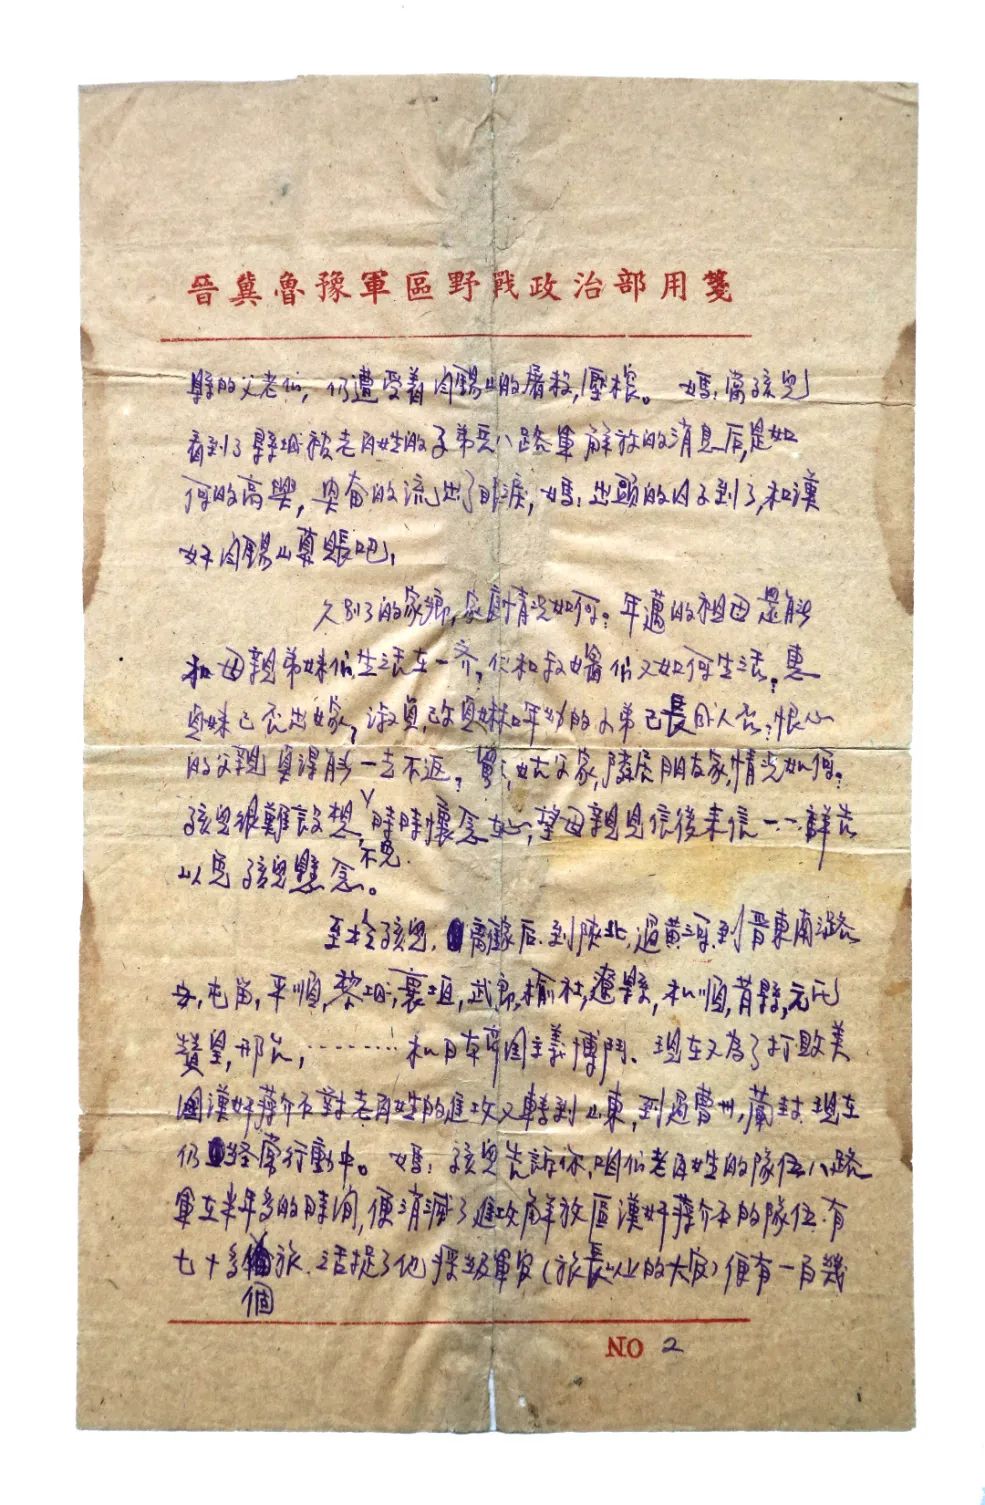 晉冀魯豫軍區野戰政治部用箋
縣的父老们，仍遭受着闫錫山的屠殺，壓根。媽：當孩兒
看到了縣城被老百姓的子弟兵八路軍解放的消息后，是如
何的高興，興奋的流出了眼淚，媽：出頭的日子到了，和漢
奸闫錫山算賬吧！
久别了的家鄉，家劌情况如何？年邁的祖母是能
和母親弟妹们生活在一齐，伙和叔嬸们又如何生活？惠
兒妹已否出嫁？淑貞，改兒妹和年幼的之弟已長成人否？恨心
的父親真得能一去不返？舅，姑父家，隣居朋友家，情况如何？
孩兒很難設想，時時懷念在心，望母親見信後来信一一詳告
不克
以免孩兒懸念。
至於孩兒，離家后，到陝北，過黄河，到晋東南潞
安，屯留，平順，黎城，襄垣，武鄉，榆社，遼縣，和順，昔縣，元氏
贊皇，邢台，………和日本帝国主義博鬥、現在又為了打敗美
國漢奸蔣介石對老百姓的進攻又轉到山東，到過曹州，蘭封，現在
仍經常行動中。媽：孩兒告訴你，咱们老百姓的隊伍八路
軍在半年多的時间，便消滅了進攻解放區漢奸蔣介石的隊伍，有
七十多旅，活捉了他 級軍官（旅長以上的大官）便有一百幾
個
NO 2